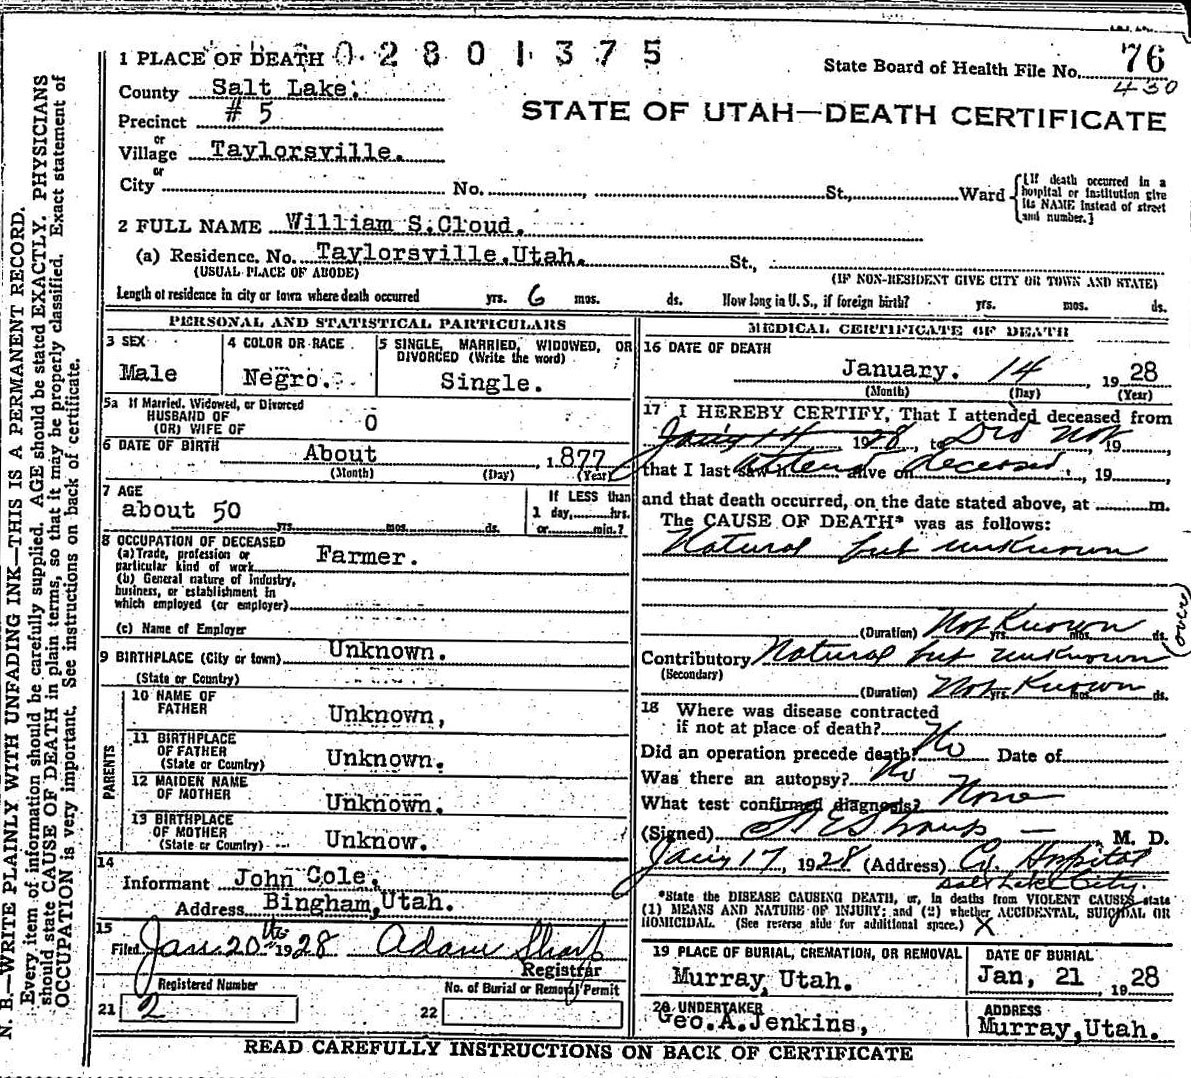 1 PLACE OF DEATH 0 2 8 0 1 3 7 5
State Board of Health File No. 76
430
County Salt Lake.
Precinct # 5
STATE OF UTAH—DEATH CERTIFICATE
or
Village Taylorsville.
or
City No. St., Ward
[If death occurred in a hospital or institution give its NAME instead of street and number.]
2 FULL NAME William S.Cloud.
(a) Residence. No. Taylorsville.Utah. St.,
(USUAL PLACE OF ABODE) (IF NON-RESIDENT GIVE CITY OR TOWN AND STATE)
Length of residence in city or town where death occurred yrs. 6 mos. ds. How long in U. S., if foreign birth? yrs. mos. ds.
PERSONAL AND STATISTICAL PARTICULARS
3 SEX
Male
4 COLOR OR RACE
Negro.
5 SINGLE, MARRIED, WIDOWED, OR
DIVORCED (Write the word)
Single.
5a If Married, Widowed, or Divorced
HUSBAND OF
(OR) WIFE OF 0
6 DATE OF BIRTH About , 1877
(Month) (Day) (Year)
7 AGE
about 50
yrs. mos. ds.
If LESS than
1 day, hrs.
or min.?
8 OCCUPATION OF DECEASED
(a) Trade, profession or
particular kind of work Farmer.
(b) General nature of Industry,
business, or establishment in
which employed (or employer)
(c) Name of Employer
9 BIRTHPLACE (City or town) Unknown.
(State or Country)
PARENTS
10 NAME OF
FATHER Unknown,
11 BIRTHPLACE
OF FATHER
(State or Country) Unknown.
12 MAIDEN NAME
OF MOTHER Unknown.
13 BIRTHPLACE
OF MOTHER
(State or Country) Unknow.
14
Informant John Cole.
Address Bingham,Utah.
15
Filed Jan 20th 1928 Adam Sharp
Registrar
Registered Number
21 2
No. of Burial or Removal Permit
22
MEDICAL CERTIFICATE OF DEATH
16 DATE OF DEATH
January. 14 , 19 28
(Month) (Day) (Year)
17 I HEREBY CERTIFY, That I attended deceased from
Jany 14 1928, to Did not 19 ,
that I last saw h attend alive on deceased , 19 ,
and that death occurred, on the date stated above, at m.
The CAUSE OF DEATH* was as follows:
Natural but unknown
(over)
(Duration) Not Known yrs. mos. ds.
Contributory Natural but unknown
(Secondary)
(Duration) Not Known yrs. mos. ds.
18 Where was disease contracted
if not at place of death?
Did an operation precede death? No Date of
Was there an autopsy? No
What test confirmed diagnosis? None
(Signed) , M. D.
Jany 17, 1928 (Address) Co Hospital
Salt Lake City.
*State the DISEASE CAUSING DEATH, or, in deaths from VIOLENT CAUSES, state
(1) MEANS AND NATURE OF INJURY; and (2) whether ACCIDENTAL, SUICIDAL OR
HOMICIDAL. (See reverse side for additional space.) X
19 PLACE OF BURIAL, CREMATION, OR REMOVAL
Murray, Utah.
DATE OF BURIAL
Jan, 21 , 19 28
20 UNDERTAKER
Geo.A.Jenkins,
ADDRESS
Murray,Utah.
READ CAREFULLY INSTRUCTIONS ON BACK OF CERTIFICATE
N. B.—WRITE PLAINLY WITH UNFADING INK—THIS IS A PERMANENT RECORD.
Every item of information should be carefully supplied. AGE should be stated EXACTLY. PHYSICIANS
should state CAUSE OF DEATH in plain terms, so that it may be properly classified. Exact statement of
OCCUPATION is very important. See instructions on back of certificate.